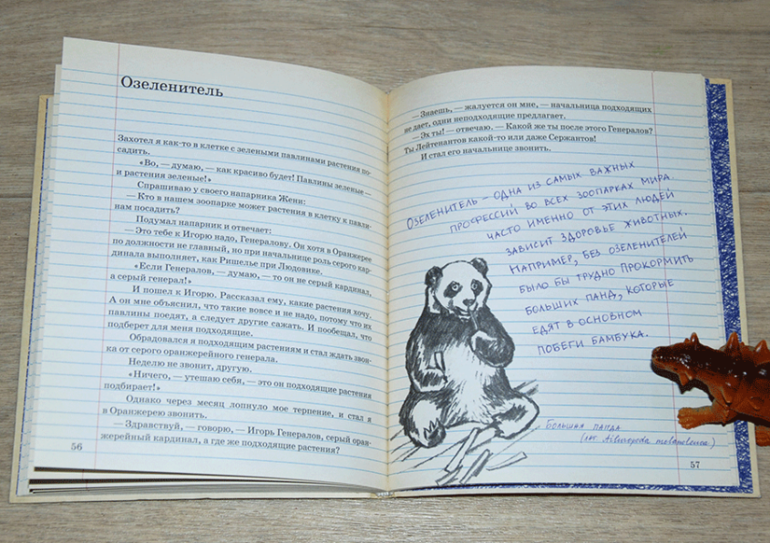 Озеленитель
Захотел я как-то в клетке с зелеными павлинами растения по-
садить.
«Во, — думаю, — как красиво будет! Павлины зеленые —
и растения зеленые!»
Спрашиваю у своего напарника Жени:
— Кто в нашем зоопарке может растения в клетку к павли-
нам посадить?
Подумал напарник и отвечает:
— Это тебе к Игорю надо, Генералову. Он хотя в Оранжерее
по должности не главный, но при начальнице роль серого кар-
динала выполняет, как Ришелье при Людовике.
«Если Генералов, — думаю, — то он не серый кардинал,
а серый генерал!»
И пошел к Игорю. Рассказал ему, какие растения хочу.
А он мне объяснил, что такие вовсе и не надо, потому что их
павлины поедят, а следует другие сажать. И пообещал, что
подберет для меня подходящие.
Обрадовался я подходящим растениям и стал ждать звон-
ка от серого оранжерейного генерала.
Неделю не звонит, другую.
«Ничего, — утешаю себя, — это он подходящие растения
подбирает!»
Однако через месяц лопнуло мое терпение, и стал я
в Оранжерею звонить.
— Здравствуй, — говорю, — Игорь Генералов, серый оран-
жерейный кардинал, а где же подходящие растения?
56
— Знаешь, — жалуется он мне, — начальница подходящих
не дает, одни неподходящие предлагает.
— Эх ты! — отвечаю, — Какой же ты после этого Генералов?
Ты Лейтенантов какой-то или даже Сержантов!
И стал его начальнице звонить.
Озеленитель – одна из самых важных
профессий во всех зоопарках мира.
Часто именно от этих людей
зависит здоровье животных.
Например, без озеленителей
было бы трудно прокормить
больших панд, которые
едят в основном
побеги бамбука.
Большая панда
(лат. Ailuropoda melanoleuca)
57